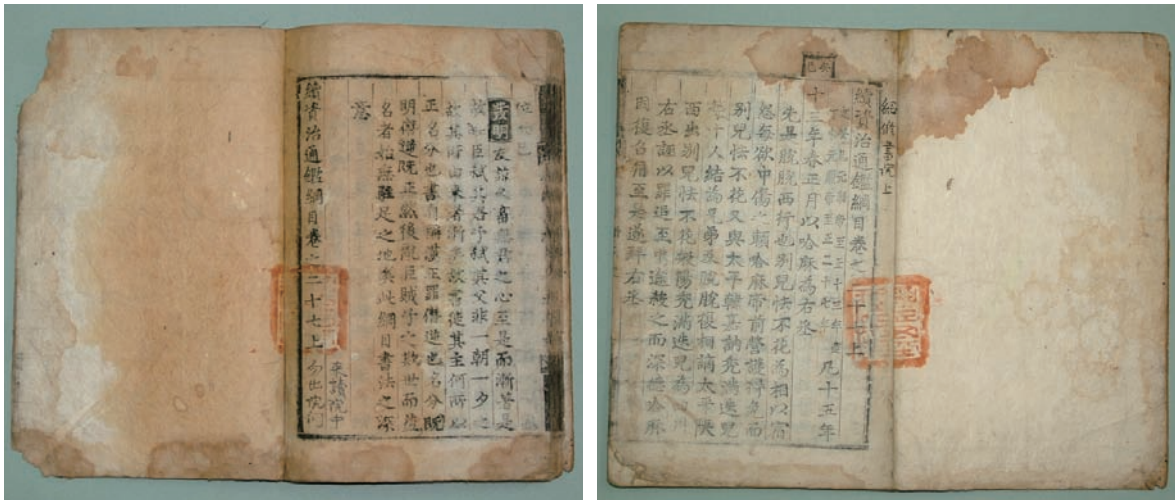 發明友諒之畜無君之心至是而漸著是
故其臣弑其君子弑其父非一朝一夕之
故其所由來者漸矣
正名分也書自稱漢王罪僭逆也名分既
明僭逆既正然後亂臣賊子之欺世而盜
名者始無駐足之地矣此綱目書法之深
意
續資治通鑑綱目卷之二十七上
來讀院中
勿出院門
紹修書院上
續資治通鑑綱目卷之二十七上
凡十五年
癸巳
十三年春正月以哈麻為右丞
先是脫脫西行也別兒怯不花為相以宿
怨每欲中傷之賴哈麻帝前營護得免而
別兒怯不花又與太平韓嘉訥禿滿迭兒
等十人結為兄弟及脫脫復相謫太平陝
西出別兒怯不花般陽禿滿迭兒為四川
右丞誣以罪追至中途殺之而深德哈麻
因復召用至是遂拜右丞